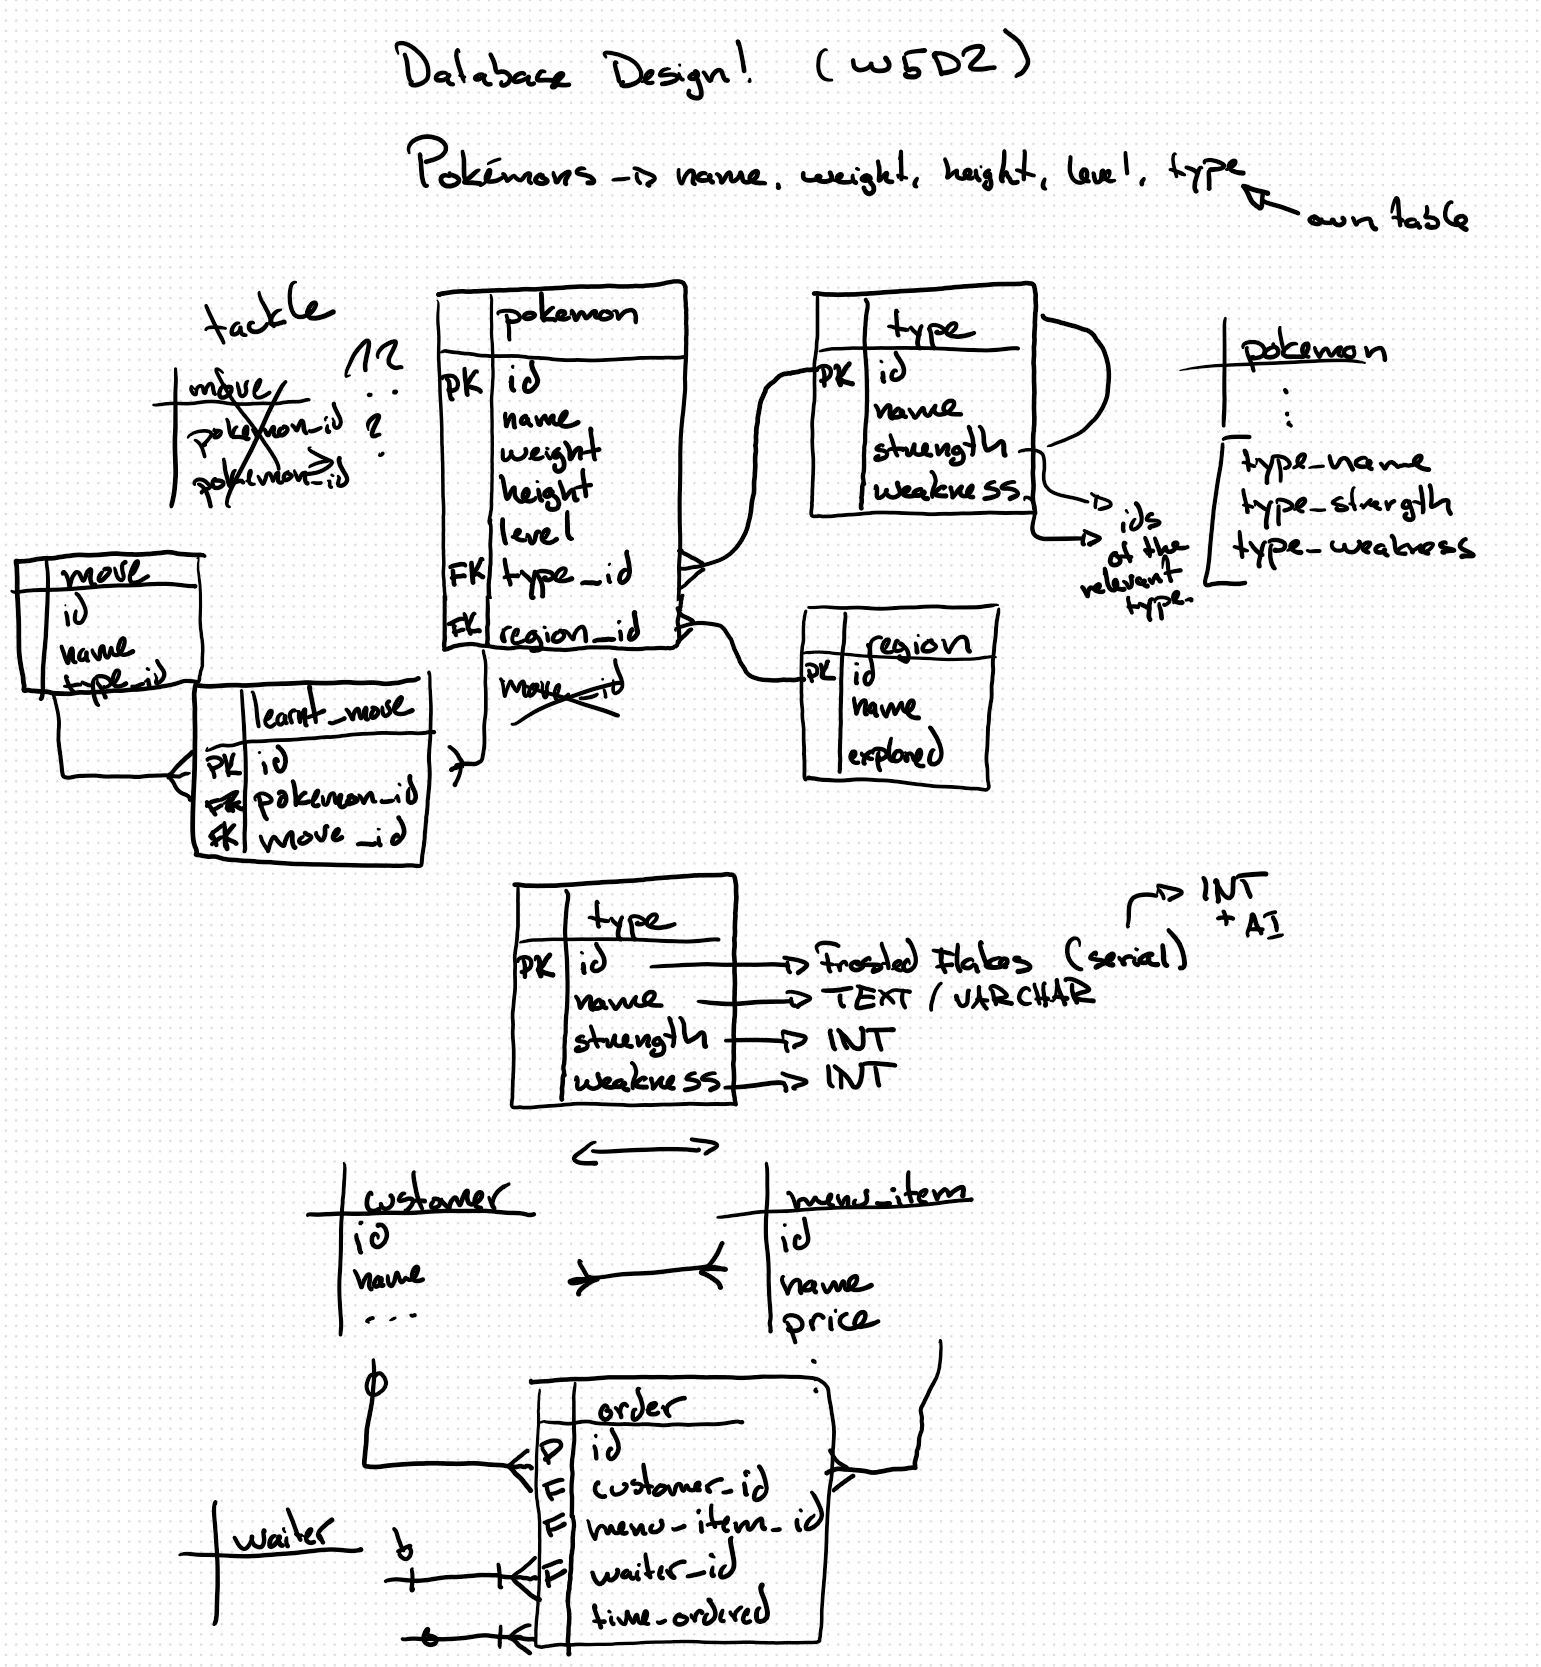 Database Design! (W5D2)
Pokémons → name, weight, height, level, type
own table
tackle
??
move
pokemon_id ?
pokemon_id
pokemon
PK id
name
weight
height
level
FK type_id
FK region_id
move_id
type
PK id
name
strength
weakness
ids
of the
relevant
type.
pokemon
:
type_name
type_strength
type_weakness
region
PK id
name
explored
move
id
name
type_id
learnt_move
PK id
FK pokemon_id
FK move_id
type
PK id → Frosted Flakes (serial) → INT + AI
name → TEXT / VARCHAR
strength → INT
weakness → INT
customer
id
name
...
menu_item
id
name
price
:
order
P id
F customer_id
F menu_item_id
F waiter_id
time_ordered
waiter